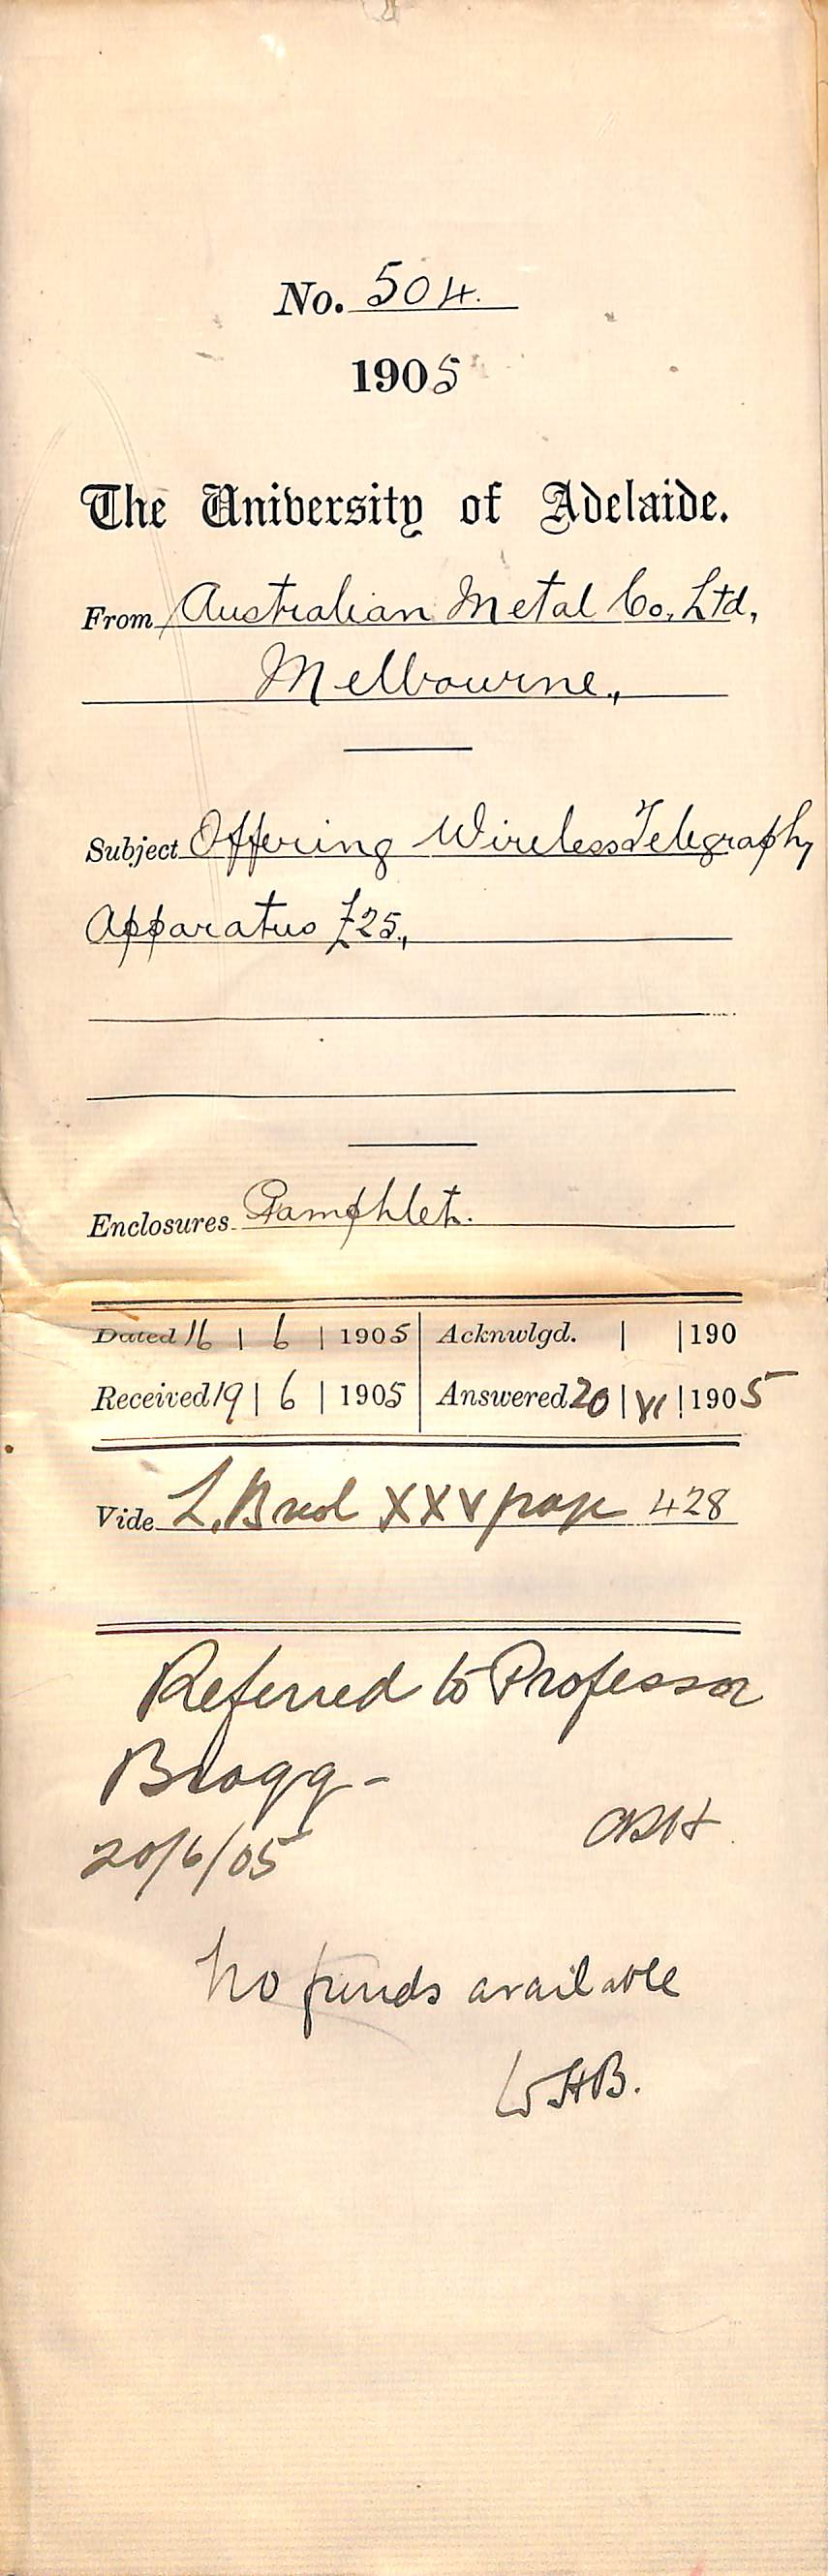 No. 504.
1905
The University of Adelaide.
From Australian Metal Co, Ltd,
Melbourne,
Subject Offering Wireless Telegraphy
Apparatus £25,
Enclosures. Pamphlet.
Dated 16 | 6 | 1905 | Acknwlgd. | |190
Received 19 | 6 | 1905 | Answered 20 | VI | 1905
Vide L. XXV page 428
Referred to Professor
Bragg -
20/6/05
No funds available
WHB.